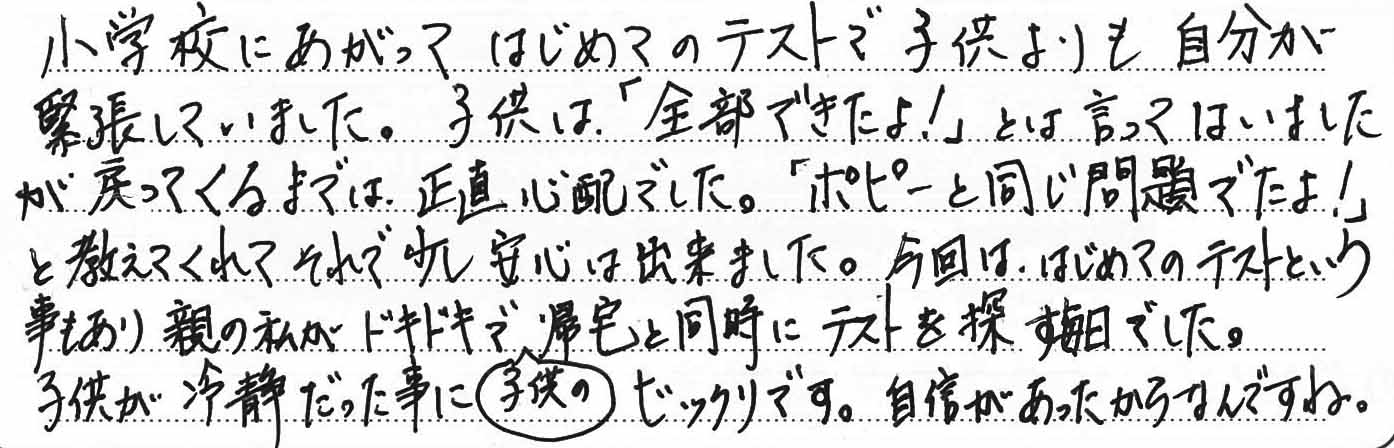 小学校にあがって はじめてのテストで 子供よりも 自分が
緊張していました。子供は「全部できたよ!」とは言ってはいました
が 戻ってくるまでは 正直心配でした。「ポピーと同じ問題でたよ!」
と教えてくれて それで少し安心は出来ました。今回は、はじめてのテストという
事もあり 親の私が ドキドキで 帰宅と同時に テストを探す毎日でした。
子供が 冷静だった事に 子供の ビックリです。自信があったからなんですね。